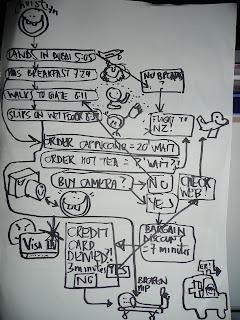 CHRISTIAN
LANDS IN DUBAI 5:05
HAS BREAKFAST 7:29
NO BREAKFAST?
WALKS TO GATE 8:11
SLIPS ON WET FLOOR
FLIGHT TO NZ!
ORDER = 20 WAIT
ORDER HOT TEA = WAIT?!
BUY CAMERA?
NO
CHECK WEB!
YES
VISA
CREDIT
CARD
DENIED!
3 minutes
YES
NO
BARGAIN
DISCOUNT
= 7 minutes
BROKEN
HIP